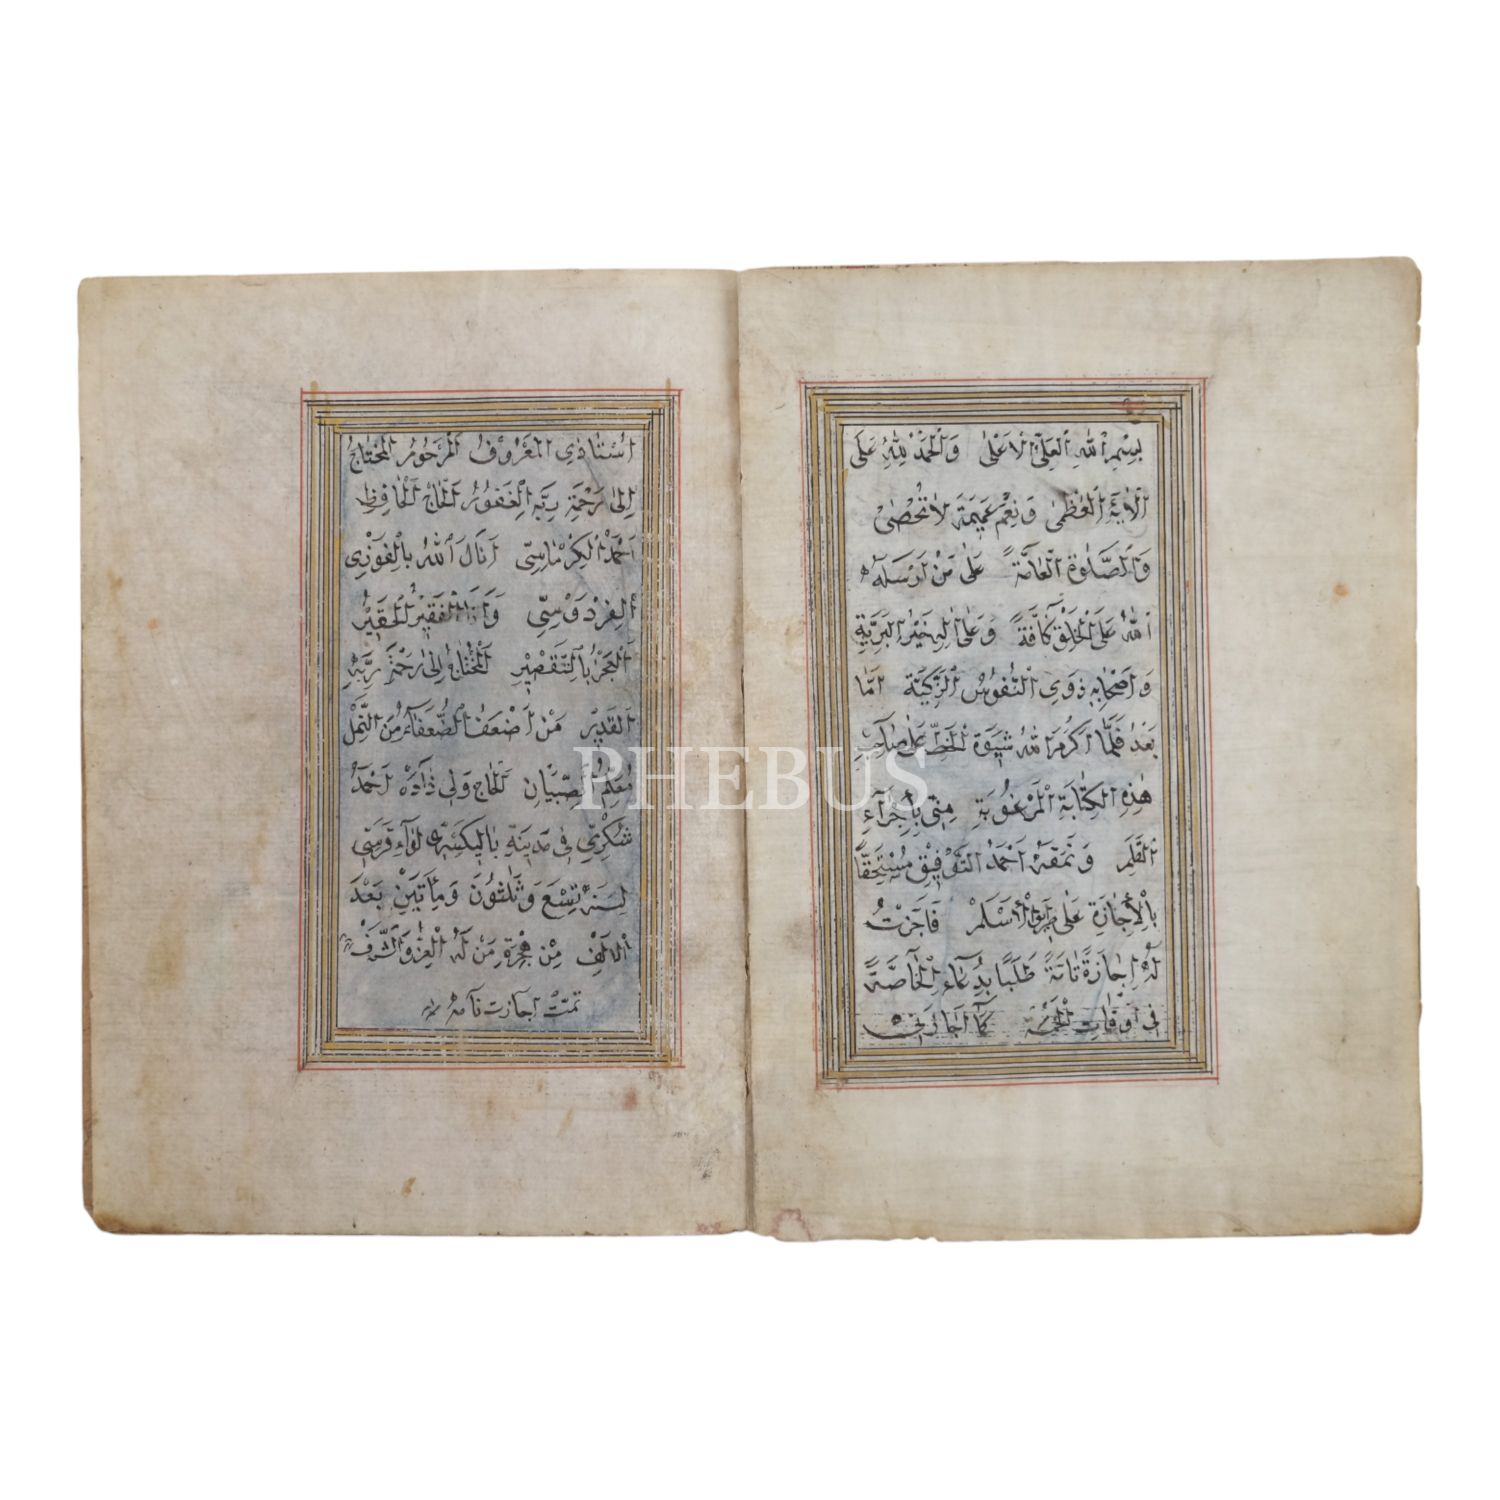 بِسْمِ اللّٰهِ الْعَلِيِّ الْاَعْلٰى وَالْحَمْدُ لِلّٰهِ عَلٰى
اٰلَايِهِ الْعُظْمٰى وَنِعَمٍ عَمِيمَةٍ لَاتُحْصٰى
وَالصَّلٰوةُ الْعَامَّةُ عَلٰى مَنْ اَرْسَلَهُ
اللّٰهُ عَلَى الْخَلْقِ كَافَّةً وَعَلٰى اٰلِهِ خَيْرِ الْبَرِيَّةِ
وَاَصْحَابِهِ ذَوِي النُّفُوسِ الزَّكِيَّةِ اَمَّا
بَعْدُ فَلَمَّا اَكْرَمَ اللّٰهُ الْخَطِّ عَلٰى صَاحِبِ
هٰذِهِ الْكِتَابَةِ الْمَرْغُوبَةِ مِنِّي بِاِجْرَآءِ
الْقَلَمِ وَنَمَقَهُ اَحْمَدُ التَّوْفِيقِ مُسْتَحِقًّا
بِالْاِجَازَةِ عَلٰى طَرِيقِ الْاَسْلَمِ فَاَجَزْتُ
لَهُ اِجَازَةً تَامَّةً طَلَبًا بِدُعَآءِ الْخَاصَّةِ
فِي اَوْقَاتِ كَمَا اَجَازَنِي
اُسْتَاذِي الْمَعْرُوفُ الْمَرْحُومُ الْمُحْتَاجُ
اِلٰى رَحْمَةِ رَبِّهِ الْغَفُورُ الْحَاجُّ الْحَافِظُ
اَحْمَدُ الْكِرْمَاسِتِّي اَنَالَ اللّٰهُ بِالْفَوْزِي
الْفِرْدَوْسِيِّ وَاَنَا الْفَقِيرُ الْحَقِيرُ
بِالتَّقْصِيرِ الْمُحْتَاجُ اِلٰى رَحْمَةِ رَبِّهِ
الْقَدِيرِ مَنْ اَضْعَفُ الضُّعَفَآءِ مِنَ النَّمْلِ
مُعَلِّمُ الصِّبْيَانِ الْحَاجُّ وَلِي زَادَهْ اَحْمَدُ
شُكْرِي فِي مَدِينَةِ بَالِيكَسْرِى لِوَآءِ قَرَسِي
لِسَنَةِ تِسْعَ وَثَلٰثُونَ وَمِأَتَيْنِ بَعْدَ
الْاَلْفِ مِنْ هِجْرَةِ مَنْ لَهُ الْعِزُّ وَالشَّرَفُ
تَمَّتْ اِجَازَتْ نَامَه
PHEBUS